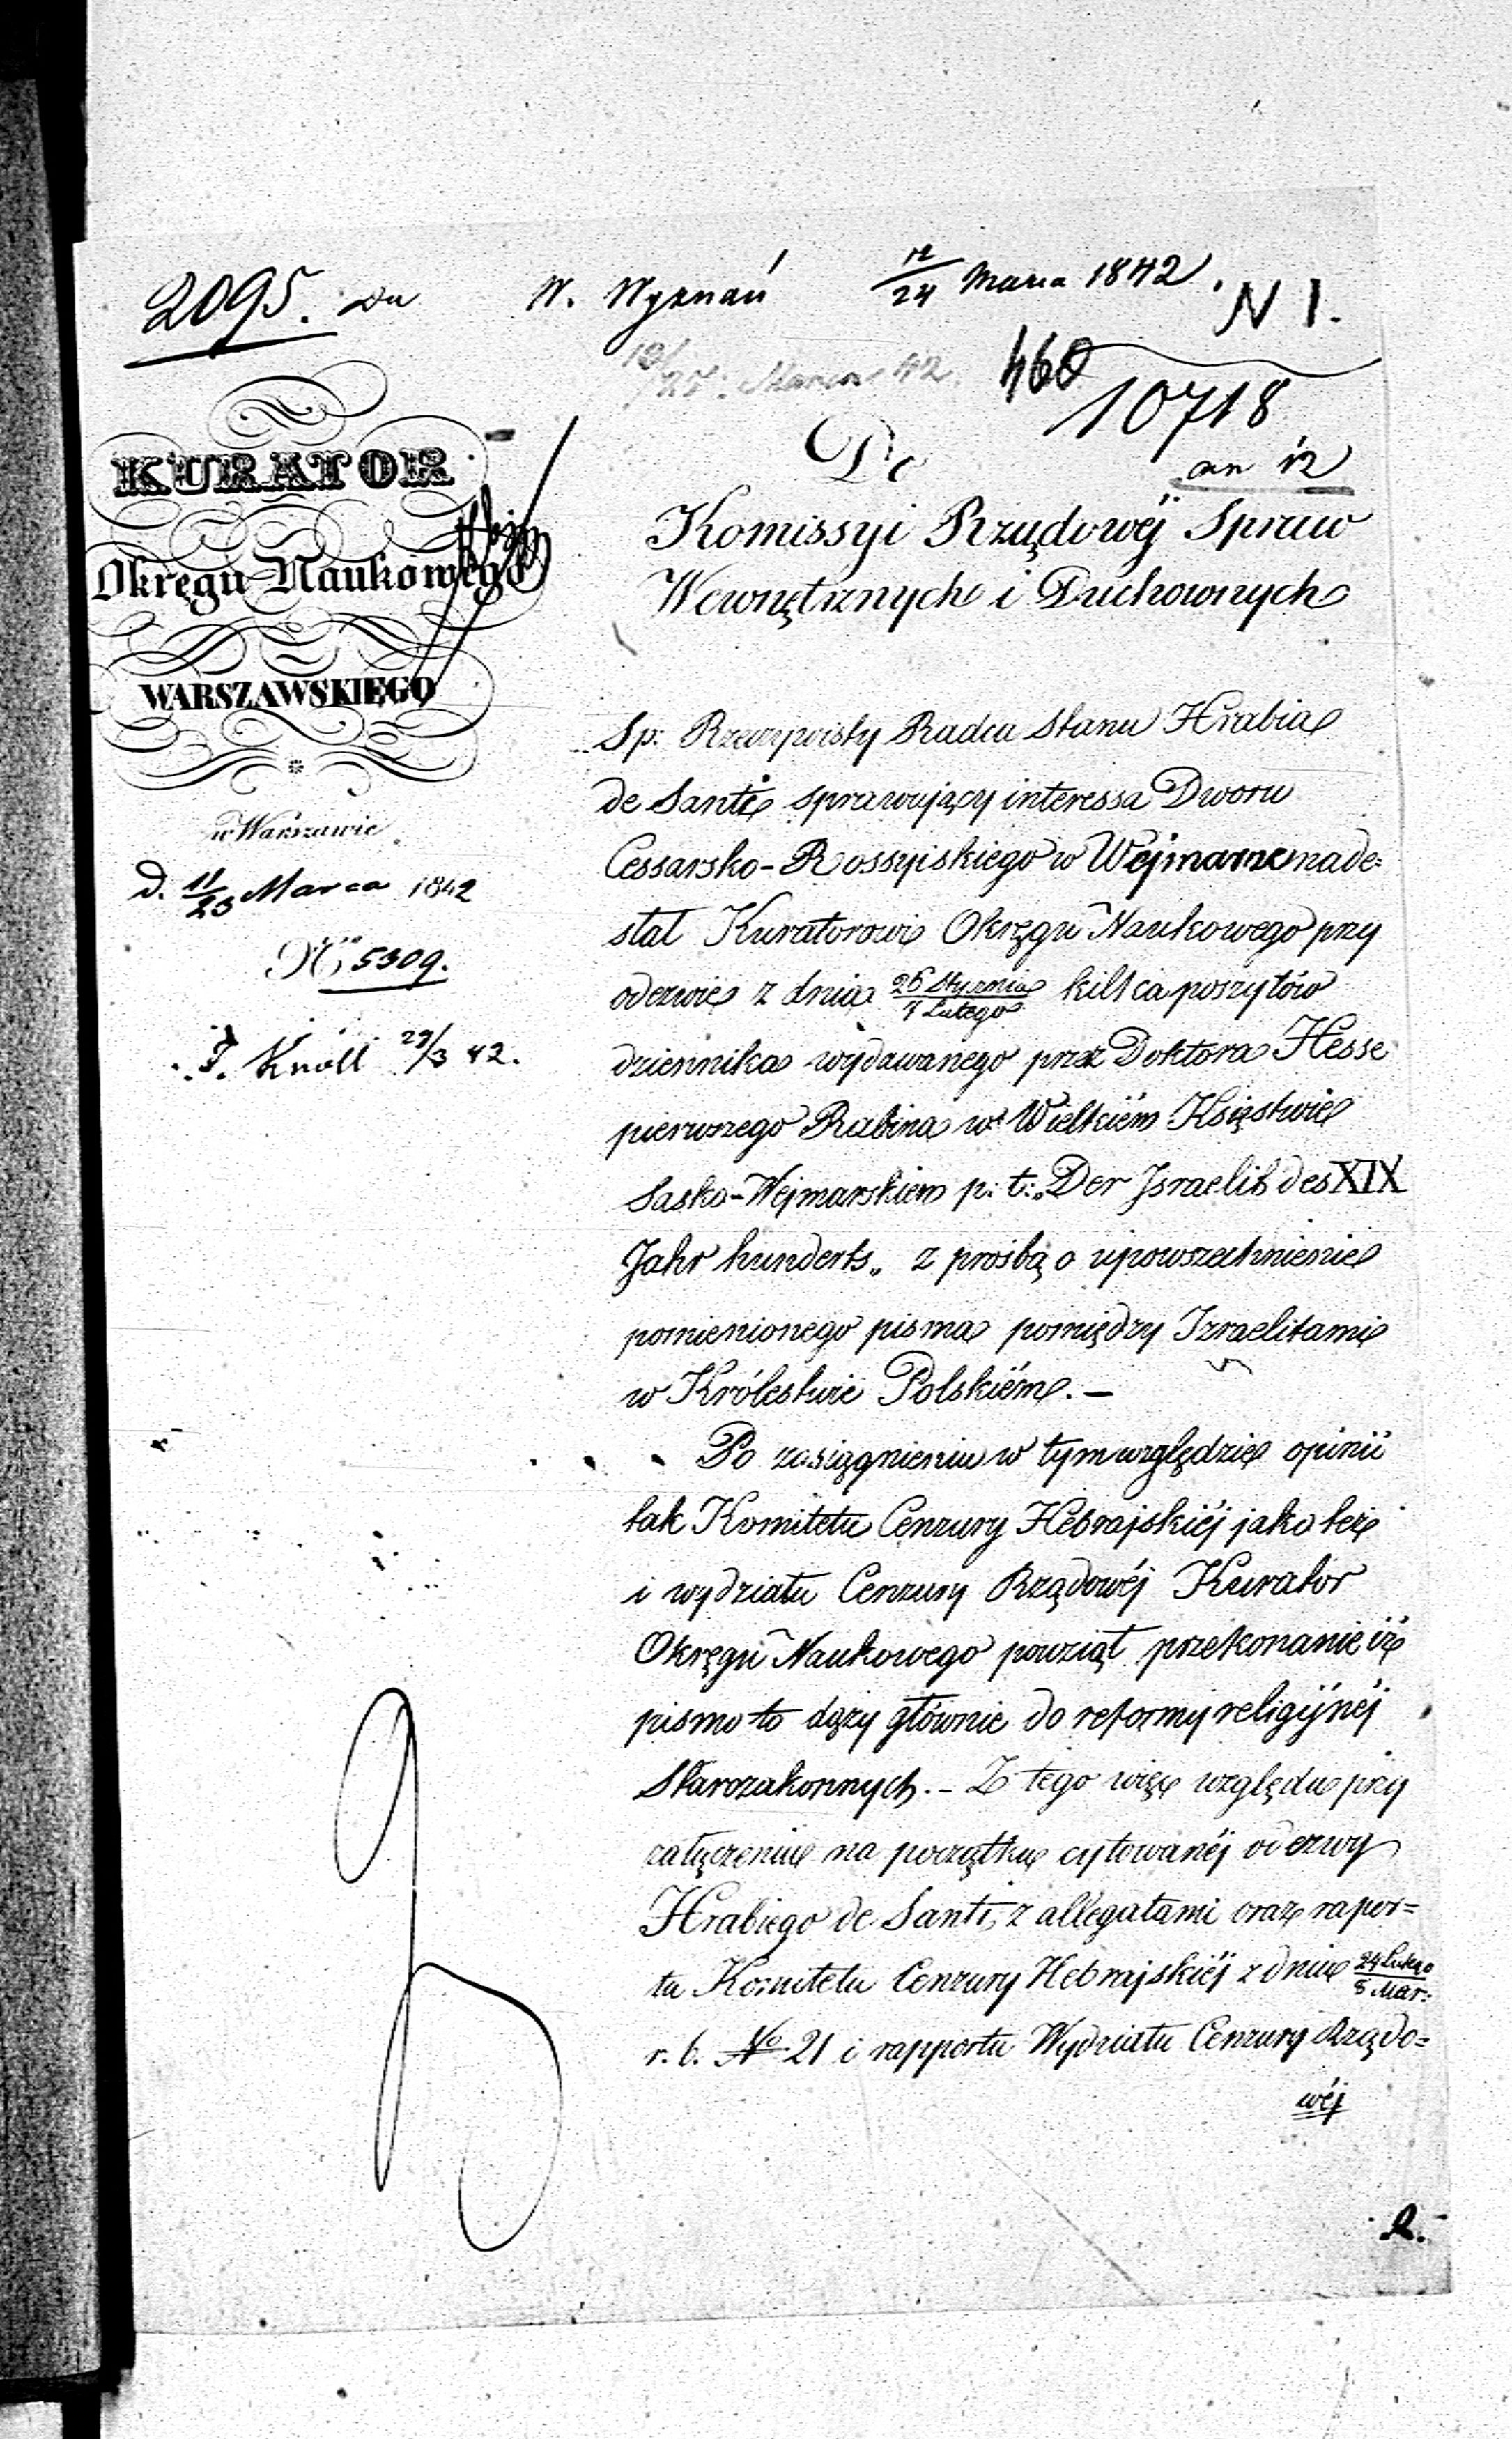 2095. W. Wyznań 12/24 Marca 1842.
N 1.
19/25. Marca 42. 460
10718
an 12
KURATOR
Okręgu Naukowego
WARSZAWSKIEGO
w Warszawie
D. 11/23 Marca 1842
No 5309.
Knoll 29/3 42.
Do
Komissyi Rządowéj Spraw
Wewnętrznych i Duchownych
Sp: Rzeczywisty Radca Stanu Hrabia
de Santi sprawujący interessa Dworu
Cessarsko-Rossyiskiego w Wejmarze nade=
słał Kuratorowi Okręgu Naukowego przy
odezwie z dnia 26 Stycznia/7 Lutego kilka poszytów
dziennika wydawanego przez Doktora Hesse
pierwszego Rabina w Wielkiém Księstwie
Sasko-Wejmarskiem p: t: „Der Israelit des XIX
Jahr hunderts„ z prośbą o upowszechnienie
pomienionego pisma pomiędzy Izraelitami
w Królestwie Polskiém. —
Po zasiągnieniu w tym względzie opinii
tak Komitetu Cenzury Hebrajskiéj jako też
i wydziału Cenzury Rządowéj Kurator
Okręgu Naukowego powziął przekonanie iż
pismo to dąży głównie do reformy religijnéj
Starozakonnych. – Z tego więc względu przy
załączeniu na początku cytowanéj odezwy
Hrabiego de Santi, z allegatami oraz rapor=
tu Komitetu Cenzury Hebrajskiéj z dnia 24 Lutego/8 Mar:
r. b. No 21 i rapportu Wydziału Cenzury Rządo=
wéj
2.